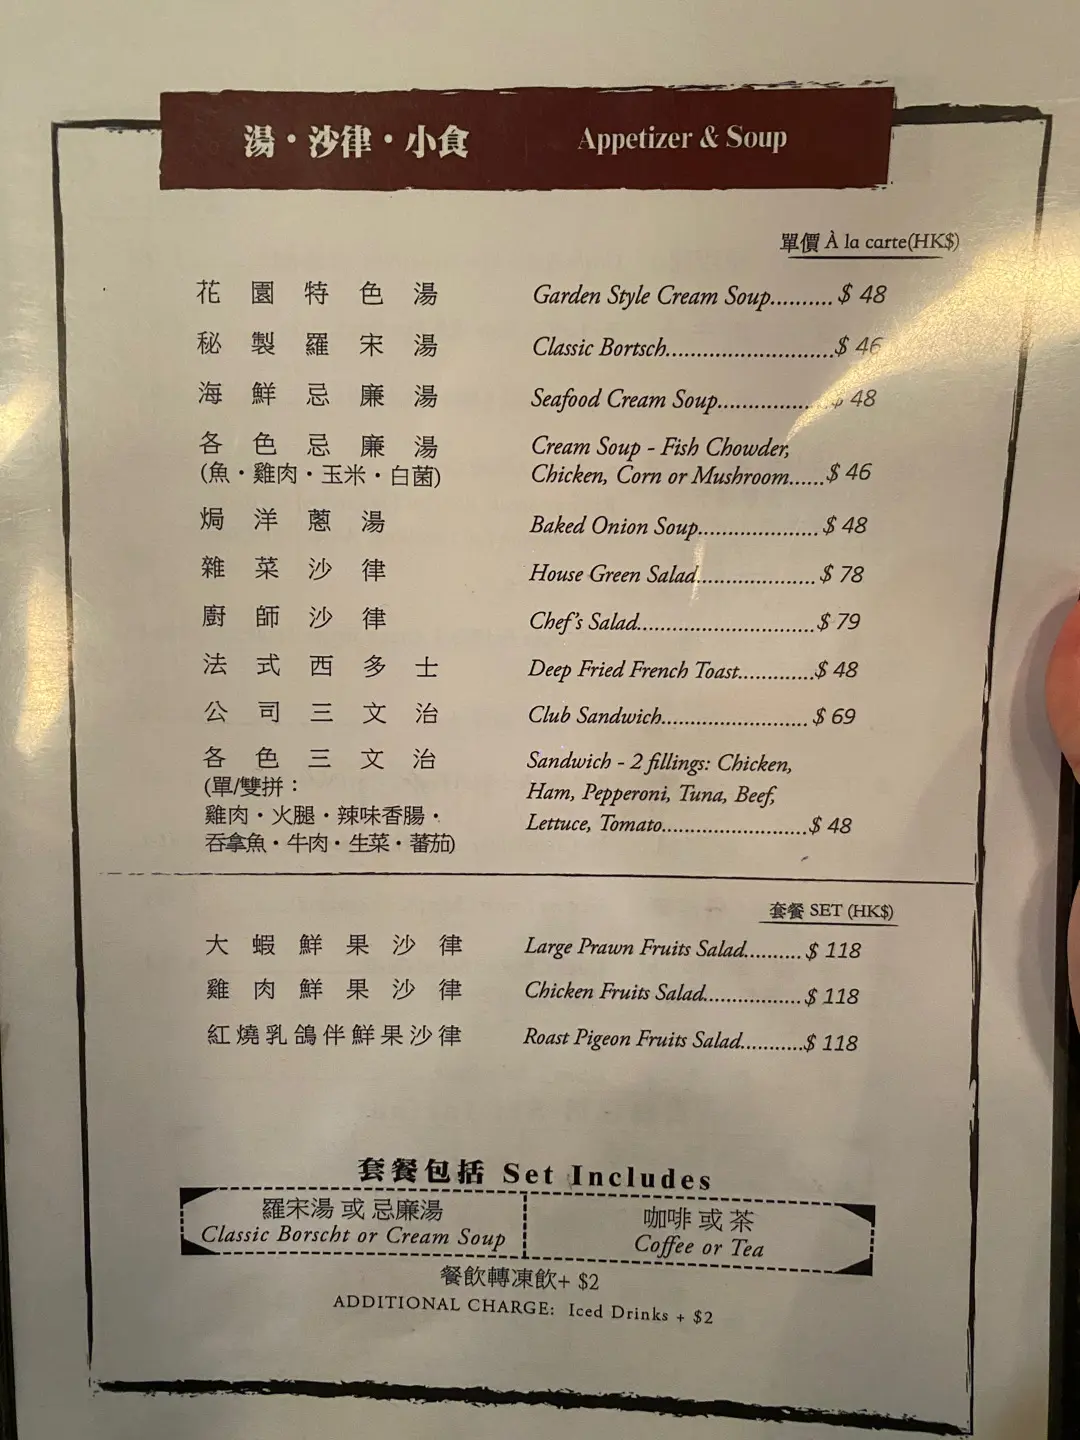 湯・沙律・小食 Appetizer & Soup
單價 À la carte(HK$)
花園特色湯 Garden Style Cream Soup.......... $ 48
秘製羅宋湯 Classic Bortsch...........................$ 46
海鮮忌廉湯 Seafood Cream Soup.................$ 48
各色忌廉湯 Cream Soup - Fish Chowder,
(魚・雞肉・玉米・白菌) Chicken, Corn or Mushroom......$ 46
焗洋蔥湯 Baked Onion Soup.................... $ 48
雜菜沙律 House Green Salad.................... $ 78
廚師沙律 Chef's Salad..............................$ 79
法式西多士 Deep Fried French Toast.............$ 48
公司三文治 Club Sandwich........................ $ 69
各色三文治 Sandwich - 2 fillings: Chicken,
(單/雙拼： Ham, Pepperoni, Tuna, Beef,
雞肉・火腿・辣味香腸・ Lettuce, Tomato........................$ 48
吞拿魚・牛肉・生菜・蕃茄)
套餐 SET (HK$)
大蝦鮮果沙律 Large Prawn Fruits Salad.......... $ 118
雞肉鮮果沙律 Chicken Fruits Salad................. $ 118
紅燒乳鴿伴鮮果沙律 Roast Pigeon Fruits Salad...........$ 118
套餐包括 Set Includes
羅宋湯 或 忌廉湯 咖啡 或 茶
Classic Borscht or Cream Soup Coffee or Tea
餐飲轉凍飲+ $2
ADDITIONAL CHARGE: Iced Drinks + $2